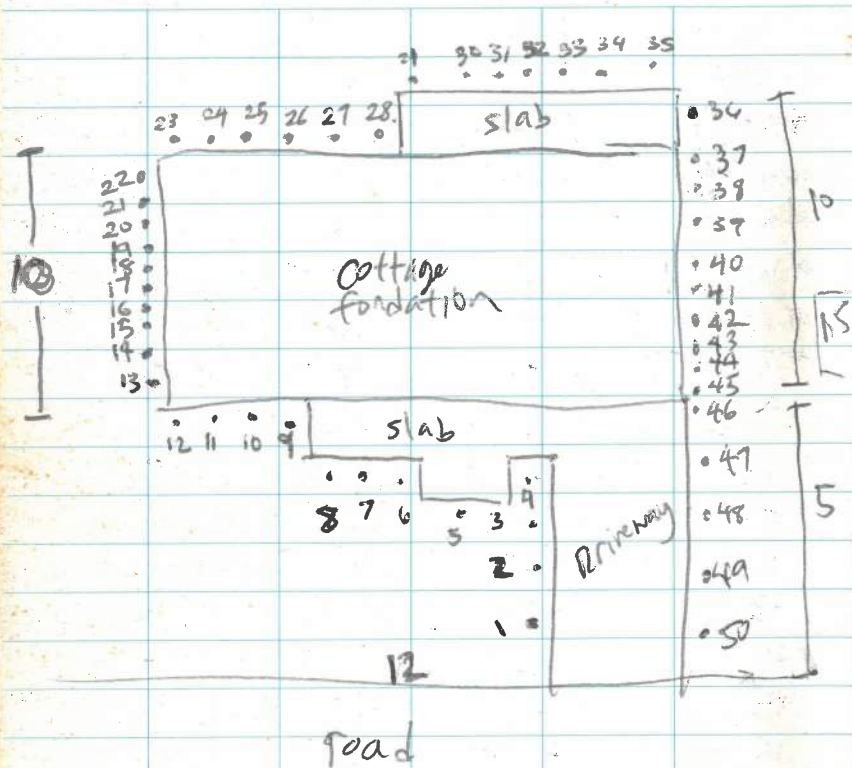 21 30 31 32 33 34 35
23 24 25 26 27 28
slab
36
37
38
39
40
41
42
43
44
45
46
47
48
49
50
10
15
5
22
21
20
19
18
17
16
15
14
13
10
Cottage
fondation
12 11 10 9
slab
8 7 6 5 3 4
2
1
Driveway
12
road